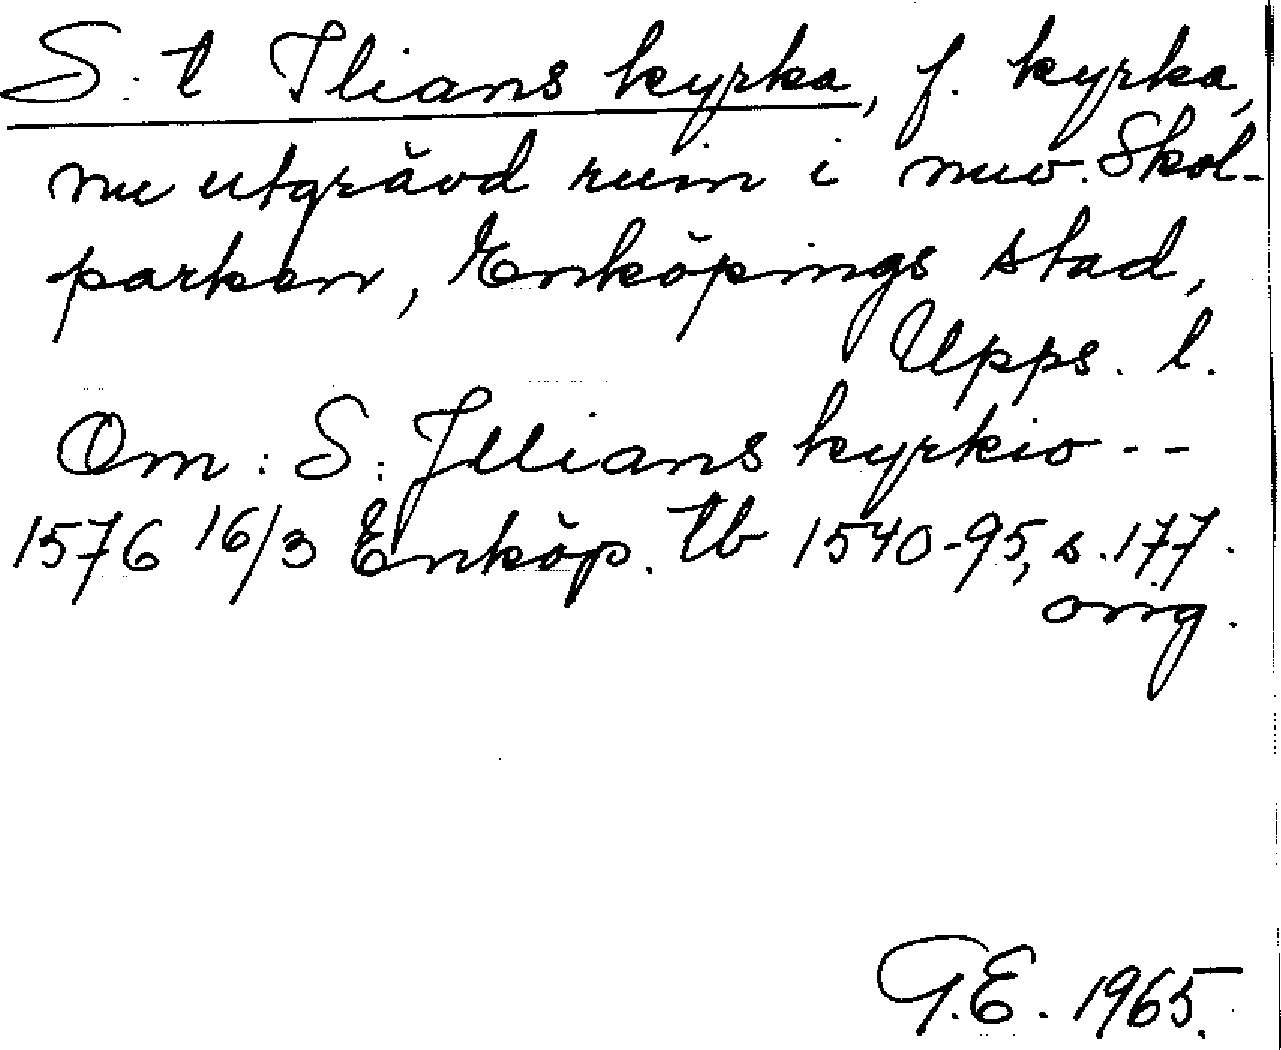 S:t Ilians kyrka, f. kyrka,
nu utgrävd ruin i nuv. Skol-
parken, Enköpings stad,
Upps. l.
Om: S: Illians kyrkio --
1576 16/3 Enköp. tb 1540-95, s. 177.
orig.
G.E. 1965.